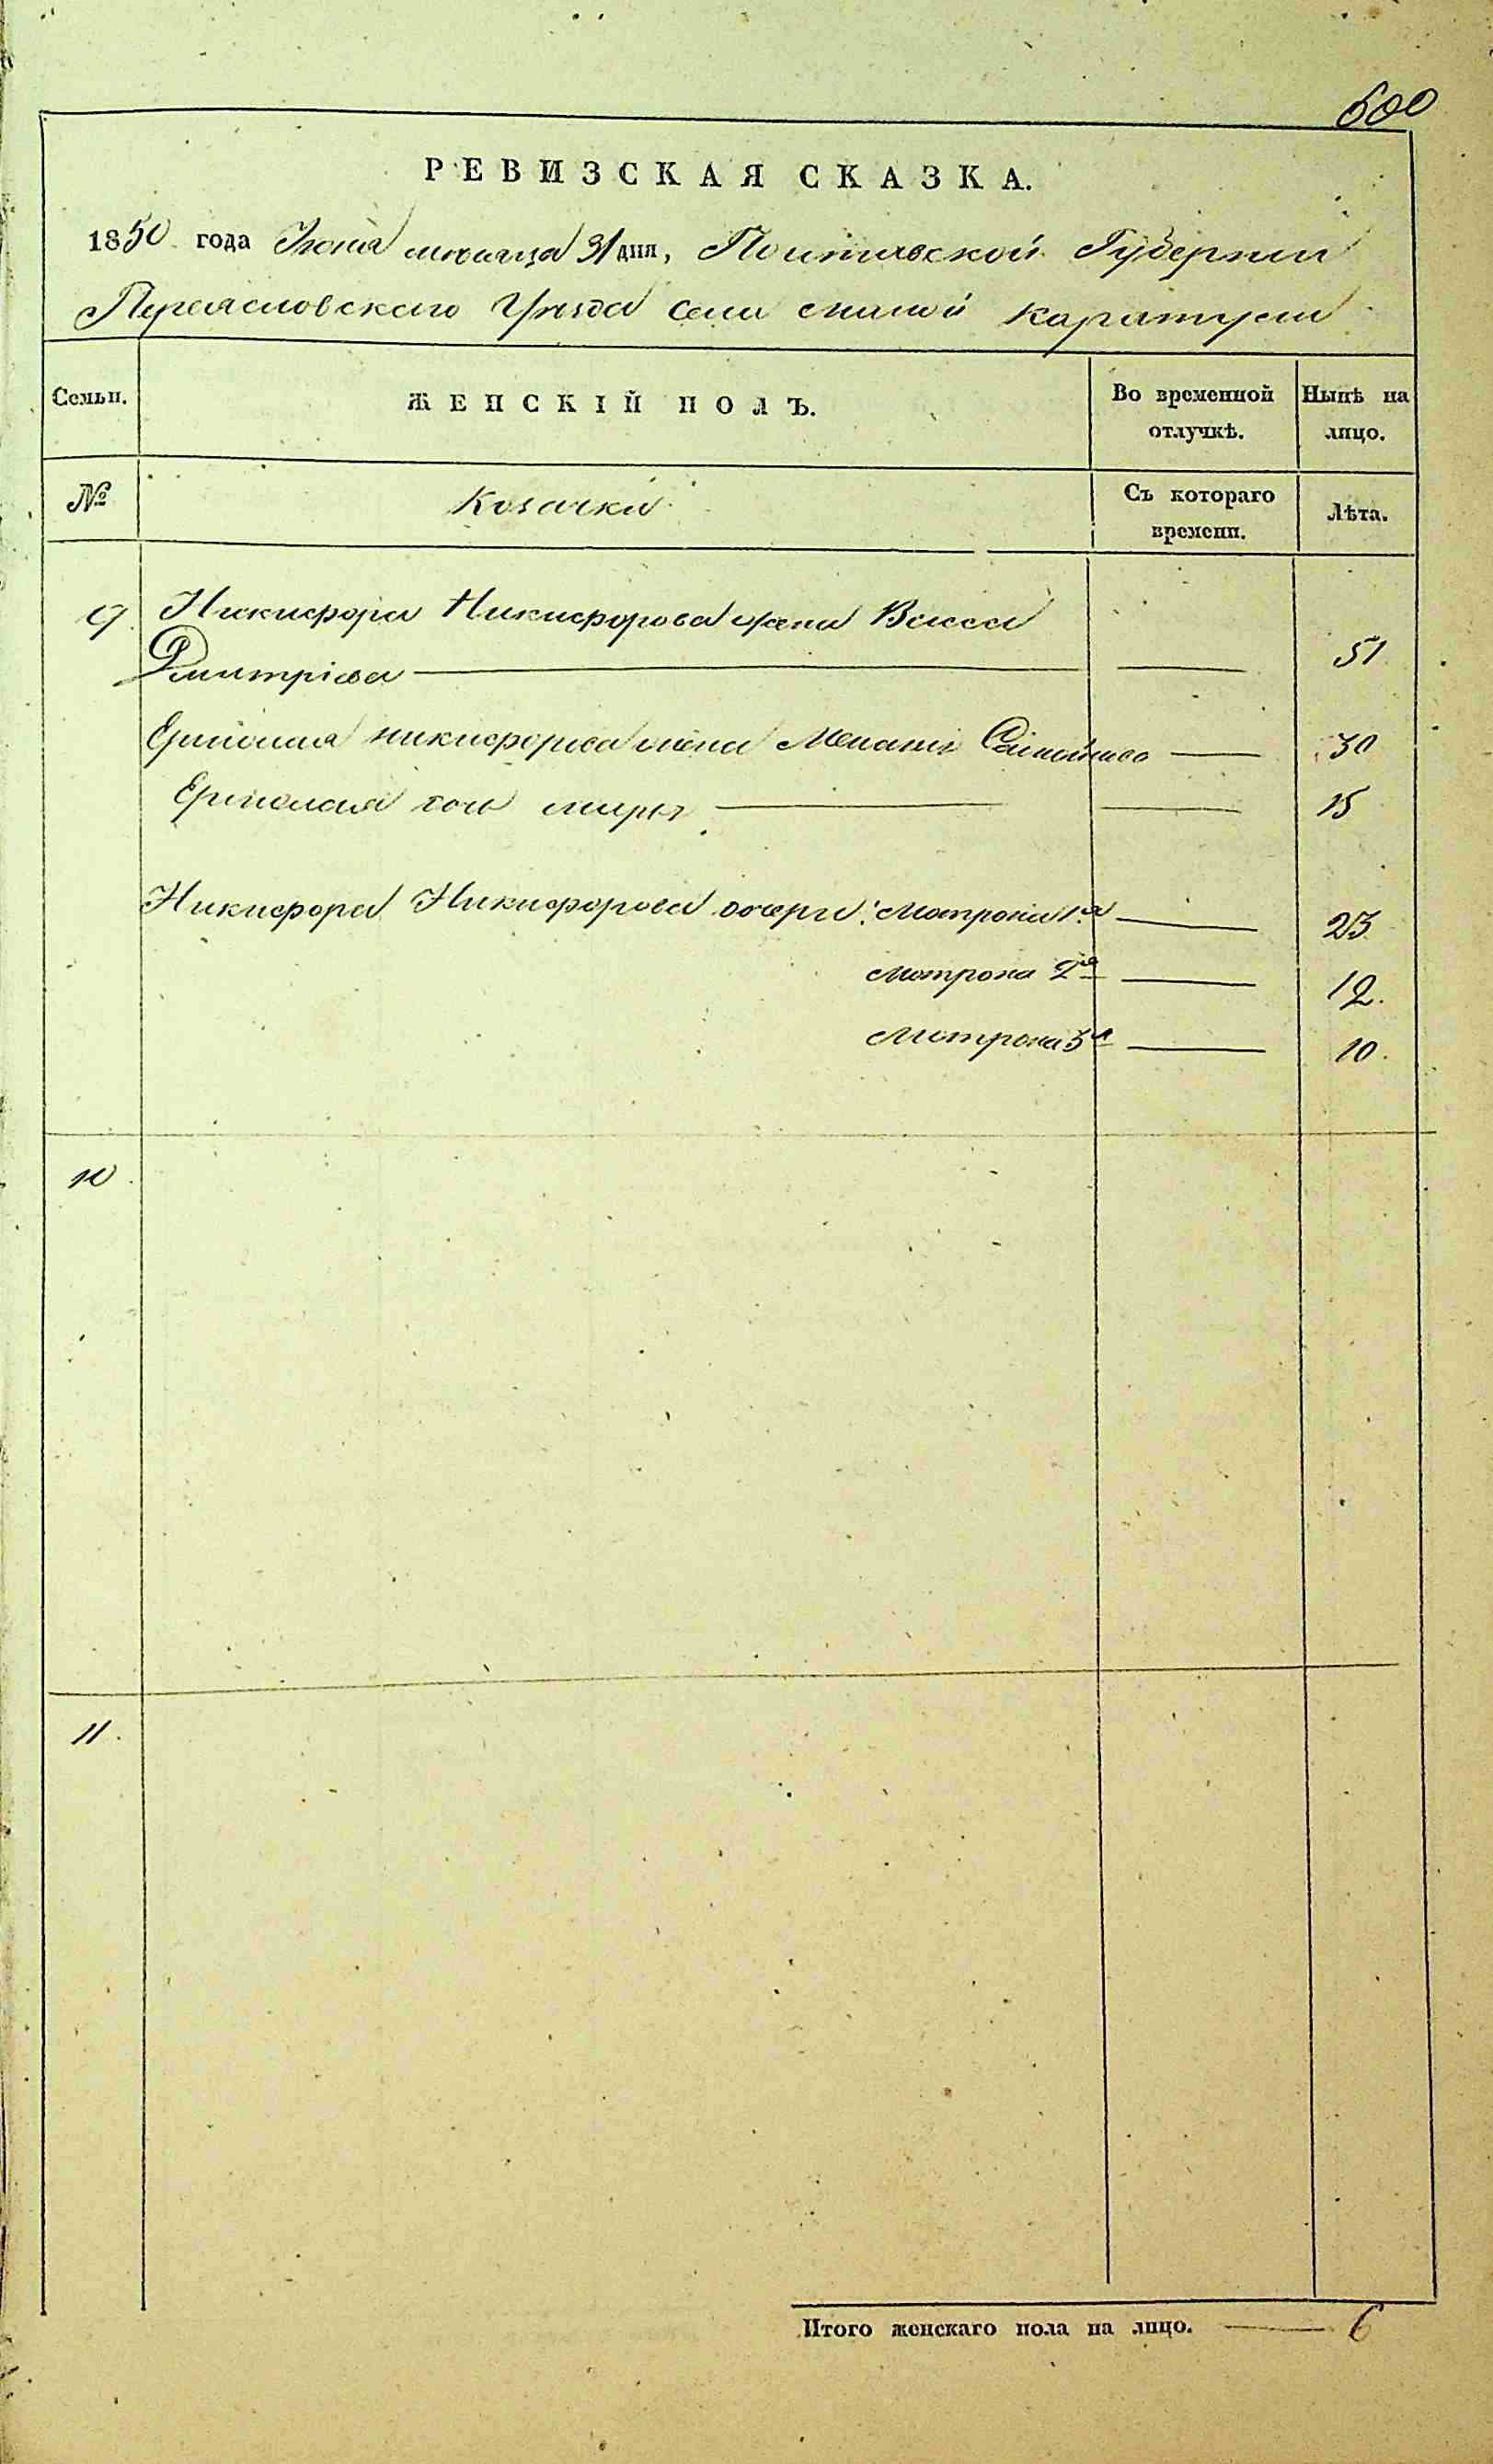 600
РЕВИЗСКАЯ СКАЗКА.
1850 года месяца 31 дня, Полтавской Губернии
Переясловскаго Уезда Села малой Каратули
Семьи.
ЖЕНСКІЙ ПОЛЪ.
Во временной отлучкѣ.
Нынѣ на лицо.
№
Козачки
Съ котораго времени.
Лѣта.
9. Никифора Никифорова жена Васса
Дмитріева 51
Ермолая никифорова жена 30
Ермолая дочь 15
Никифора Никифорова дочери: Мотрона 1я 23
Мотрона 2я 12.
Мотрона 3я 10.
10.
11.
Итого женскаго пола на лицо. 6